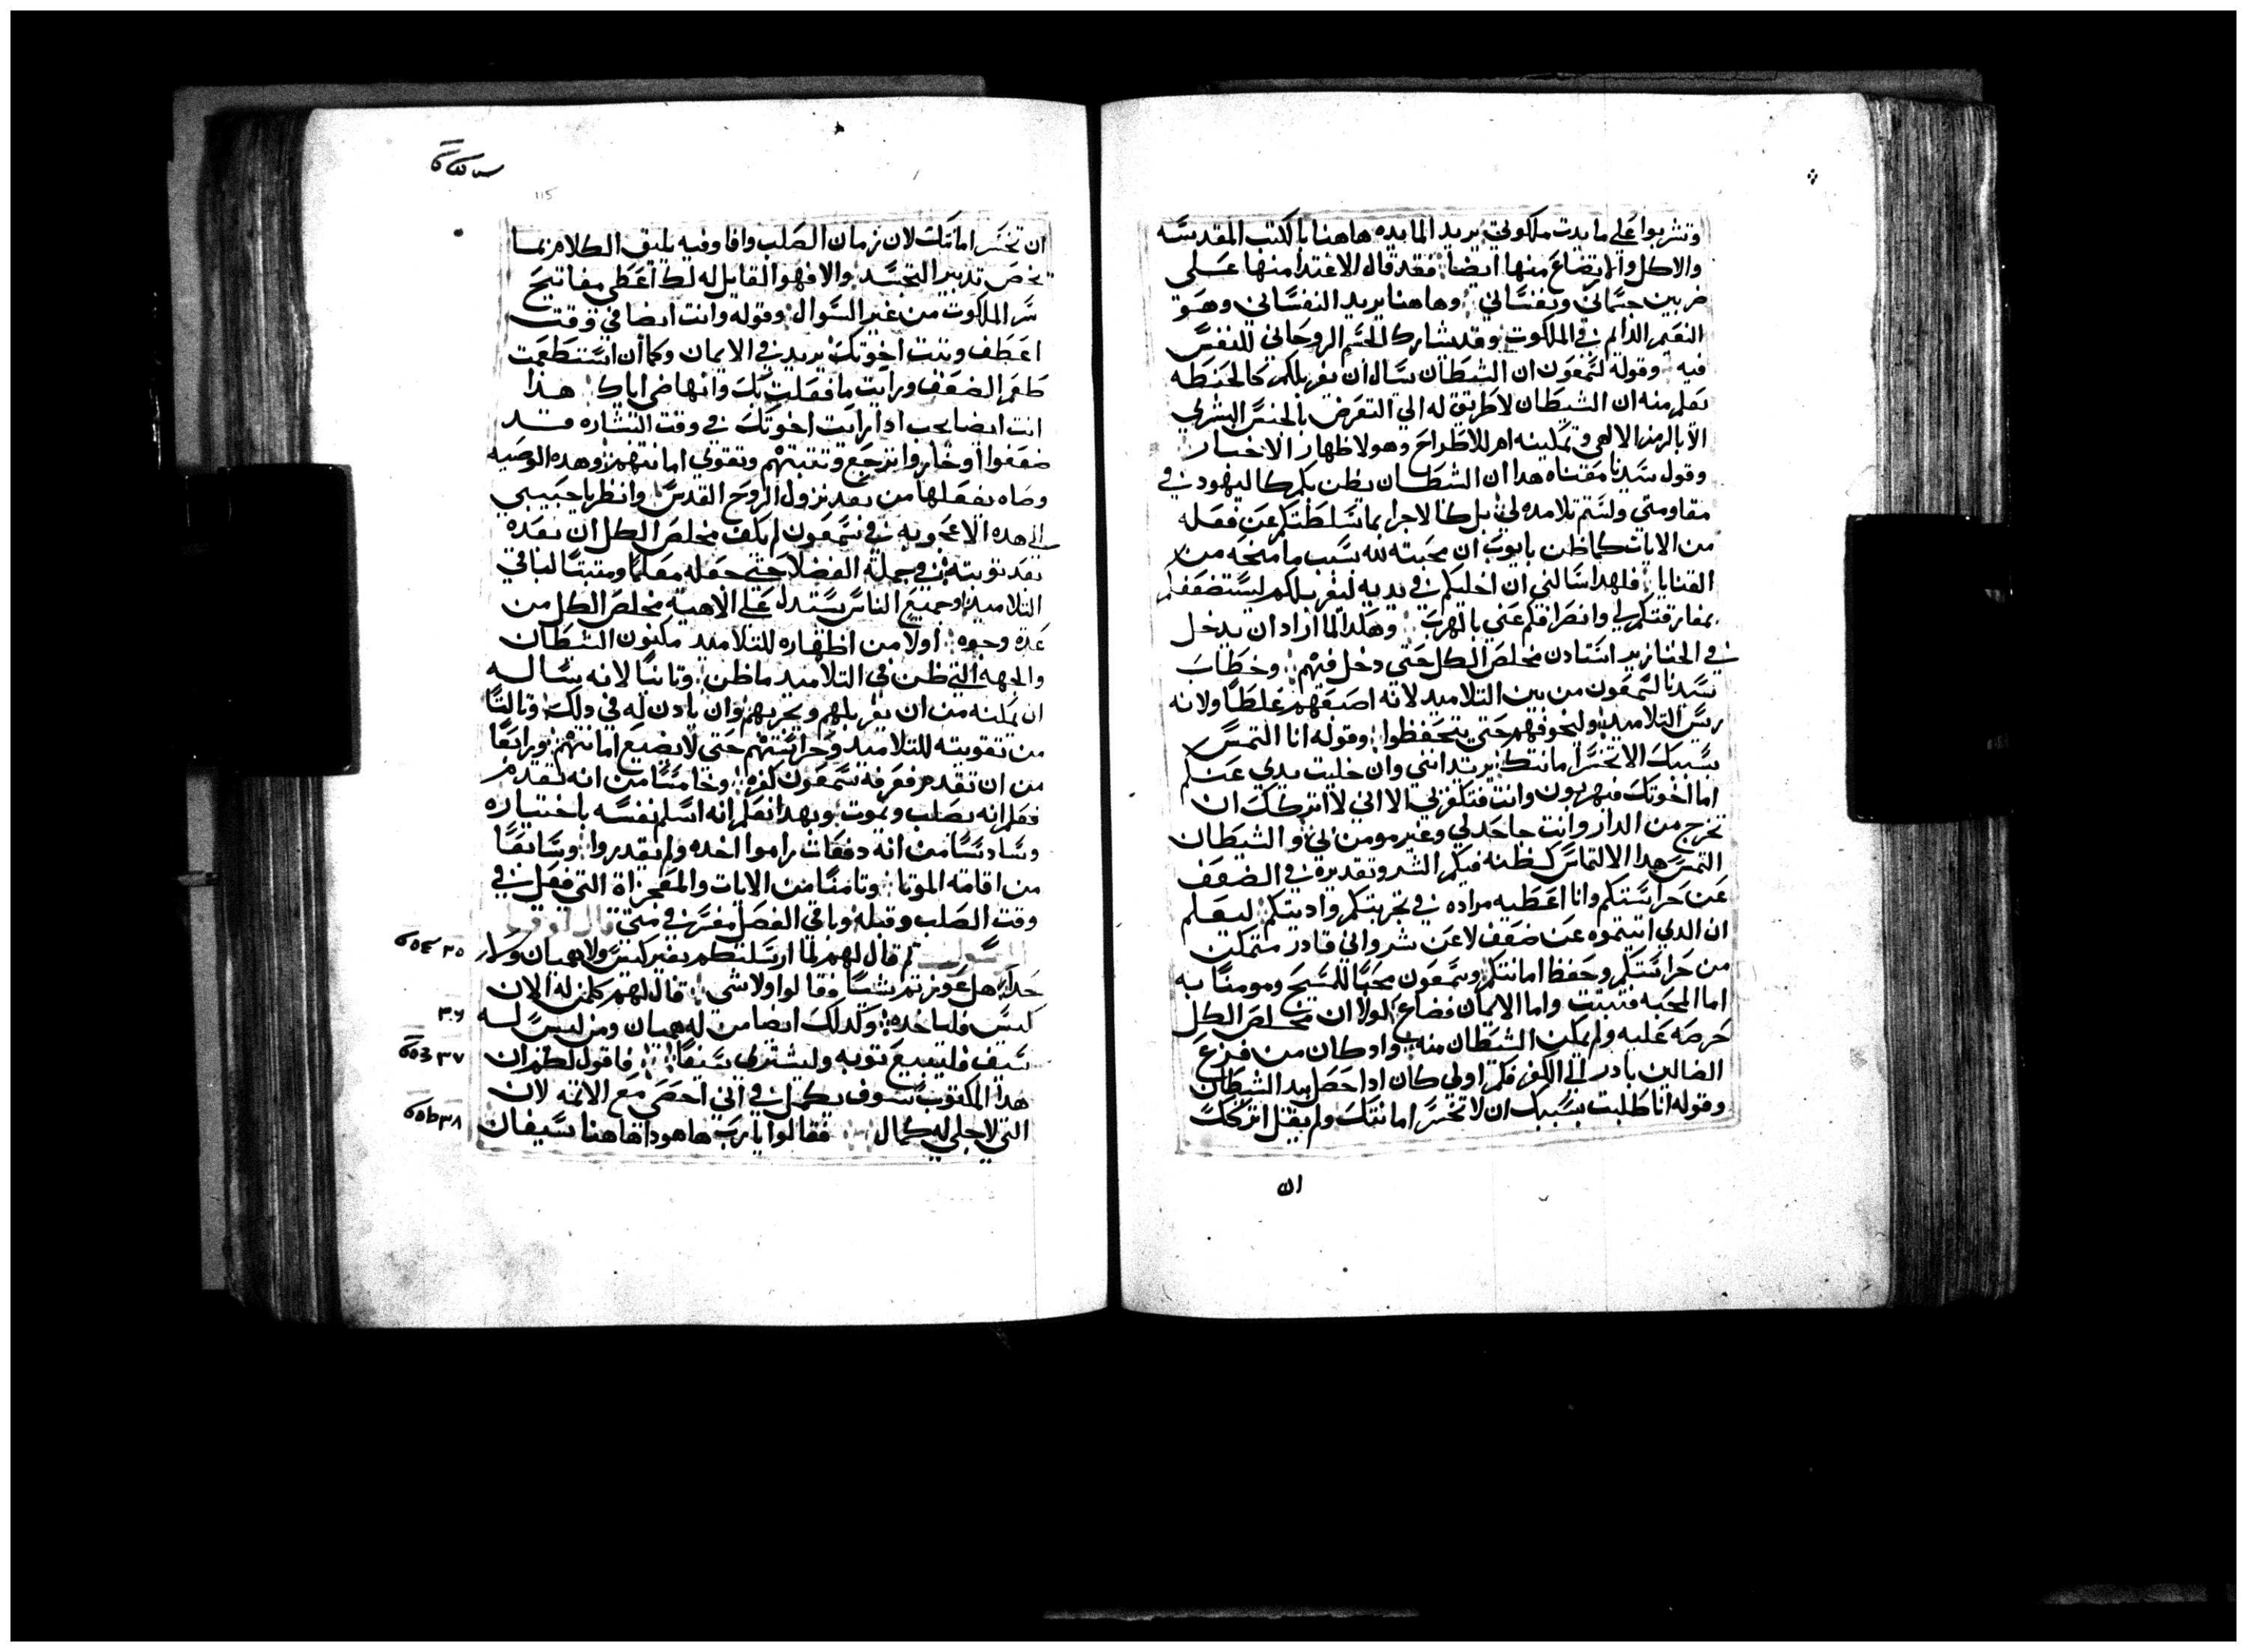 وتشربوا على مايدت ملكوتي يريد المايده هاهنا بالكتب المقدسه
والاكل والارتضاع منها ايضا فقد قال الاغتدا منها على
ضربين جسماني ونفساني وهاهنا يريد النفساني وهو
النعيم الدايم في الملكوت وقد يشارك الجسم الروحاني للنفس
فيه وقوله لشمعون ان الشيطان سال ان يغربلكم كالحنطه
نعلم منه ان الشيطان لا طريق له الي التعرض بالجنس البشري
الا بالرمز الالهي وتمكينه اهر للاطراح وهو لاظهار الاختيار
وقول سيدنا معناه هدا ان الشيطان يظن بكم كاليهود في
مقاومتي ولستم تلامده لي بل كالاجرا بما تسلطتكم عن فعله
من الايات كما ظن بايوب ان محبته لله بسبب ما منحه من
القنايا فلهدا سالني ان اخليكم في يديه ليغربلكم ليستضعفكم
بمفارقتكم لي وانصرافكم عني بالهرب وهكدا لما اراد ان يدخل
في الخنازير استادن مخلص الكل حتي دخل فيهم وخطاب
سيدنا لشمعون من بين التلاميد لانه اصعبهم غلطا ولانه
ريس التلاميد وليخوفهم حتي يتحفظوا وقوله انا التمس
بسببك الا تخسر امانتك يريد انني وان خليت يدي عنكم
اما اخوتك فيهربون وانت فتكفر بي الا اني لا اتركك ان
تخرج من الدار وانت جاحد لي وغير مومن بي و الشيطان
التمس هدا الالتماس لظنه فيكم الشر وتقديره في الضعف
عن حراستكم وانا اعطيه مراده في تجربتكم واديتكم ليعلم
ان الدي اتيتموه عن ضعف لا عن شر واني قادر متمكن
من حراستكم وحفظ امانتكم وشمعون محبا للمسيح ومومنا به
اما المحبه فتبتت واما الايمان فضاع لولا ان مخلص الكل
حرصه عليه ولم يمكن الشيطان منه واد كان من فزع
الضالين بادر الي الكفر فكم اولي كان ادا حصل بيد الشيطان
وقوله انا طلبت بسببك ان لا تخسر امانتك ولم يقل اتركك
ان
115
ان تخسر امانتك لان زمان الصلب وافا وفيه يليق الكلام بما
يخص تدبير التجسد والا فهو القايل له لك اعطي مفاتيح
سر الملكوت من غير السوال وقوله وانت ايضا في وقت
اعطف وتبت اخوتك يريد في الايمان وكما ان استطعمت
طعم الضعف ورايت ما فعلت بك وانهاضي اياك هدا
انت ايضا يجب ادا رايت اخوتك في وقت البشاره قد
ضعفوا او خاروا ترجع وتتبتهم وتقوي امانتهم وهده الوصيه
وصاه بفعلها من بعد نزول الروح القدس وانظر يا حبيبي
الي هده الاعجوبه في شمعون لم يكف مخلص الكل ان يعده
بعد توبته في جملة الفضلا حتي جعله معلما ومتبتا لباقي
التلاميد وجميع الناس يستدل علي الاهية مخلص الكل من
عدة وجوه اولا من اظهاره للتلاميد مكنون الشيطان
والجهه التي ظن في التلاميد ما ظن وتانيا لانه يساله
ان يمكنه من ان يغربلهم ويجربهم وان يادن له في دلك وتالتا
من تقويته للتلاميد وحراستهم حتي لا يضيع امانتهم ورابعا
من ان تقدم فعرفه شمعون كفره وخامسا من انه تقدم
فعلم انه يصلب ويموت وبهدا نعلم انه اسلم نفسه باختياره
وسادسا من انه دفعات راموا اخده ولم يقدروا وسابعا
من اقامة الموتا وتامنا من الايات والمعجزاة التي فعل في
وقت الصلب وقبله وباقي الفصل مفسر في متي قال لوقا
الرسول تم قال لهم لما ارسلتكم بغير كيس ولا هميان ولا ٣٥
حدا هل عوزتم شيا فقالوا ولا شي قال لهم كلمن له الان
كيس فلياخده وكدلك ايضا من له هميان ومن ليس له ٣٦
سيف فليبيع توبه وليشتري سيفا فاقول لكم ان ٣٧
هدا المكتوب سوف يكمل في اني احصي مع الاتمه لان
التي لاجلي لها كمال فقالوا يارب هاهودا هاهنا سيفان ٣٨